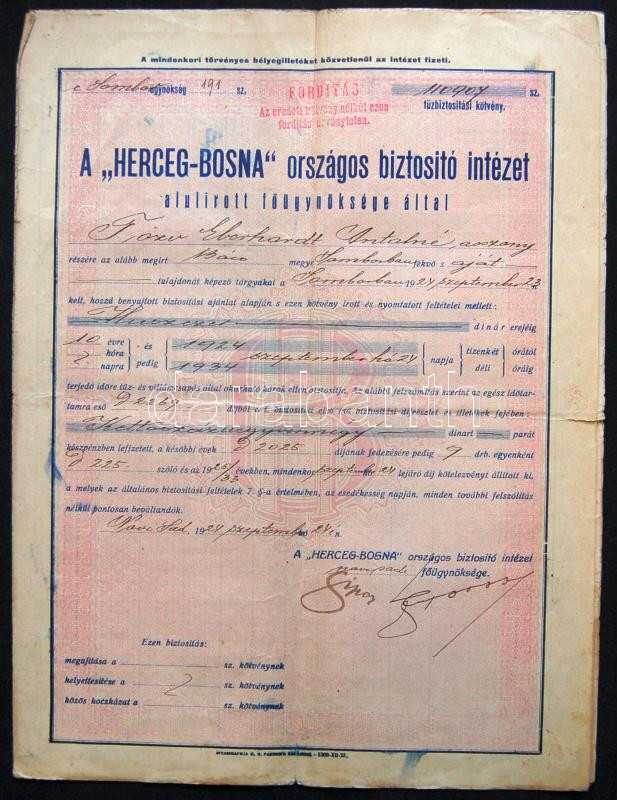 A mindenkori törvényes bélyegilletéket közvetlenül az intézet fizeti.
ügynökség 191 sz. FORDITÁS 110907 sz.
Az eredeti kötvény nélkül ezen tűzbiztositási kötvény.
forditás érvénytelen.
A „HERCEG-BOSNA“ országos biztositó intézet
alulirott főügynöksége által
Eberhardt Antalné asszony
részére az alább megirt megye Somborban fekvő s saját
tulajdonát képező tárgyakat a Somborban 1924 szeptember 23
kelt, hozzá benyujtott biztositási ajánlat alapján s ezen kötvény irott és nyomtatott feltételei mellett:
dinár erejéig
10 évre és 1924 szeptember hó 24 napja tizenkét órától
hóra
napra pedig 1934 déli óráig
terjedő időre tüz- és villámcsapás által okozható károk ellen biztositja. Az alábbi felszámitás szerint az egész időtar-
tamra eső D díjból e. f. önt. biztositási díjrészlet és illetékek fejében:
dinart parát
készpénzben lefizetett, a későbbi évek D 2025 díjának fedezésére pedig 9 drb. egyenként
D 225 szóló és az 1925/33 években, mindenkor szeptember 24 lejáró díj kötelezvényt állitott ki,
a melyek az általános biztositási feltételek 7. §-a értelmében, az esedékesség napján, minden további felszólitás
nélkül pontosan beváltandók.
Novi Sad, 1924 szeptember 24 én.
A „HERCEG-BOSNA“ országos biztositó intézet
főügynöksége.
Ezen biztositás:
megujitása a sz. kötvénynek
helyettesitése a sz. kötvénynek
közös kockázat a sz. kötvénynek
darabanth